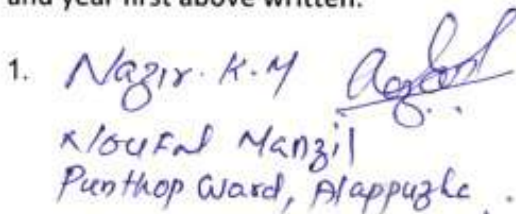 and year first above written.
1. Nazir. K.M
Noufal Manzil
Punthop Ward, Alappuzha.